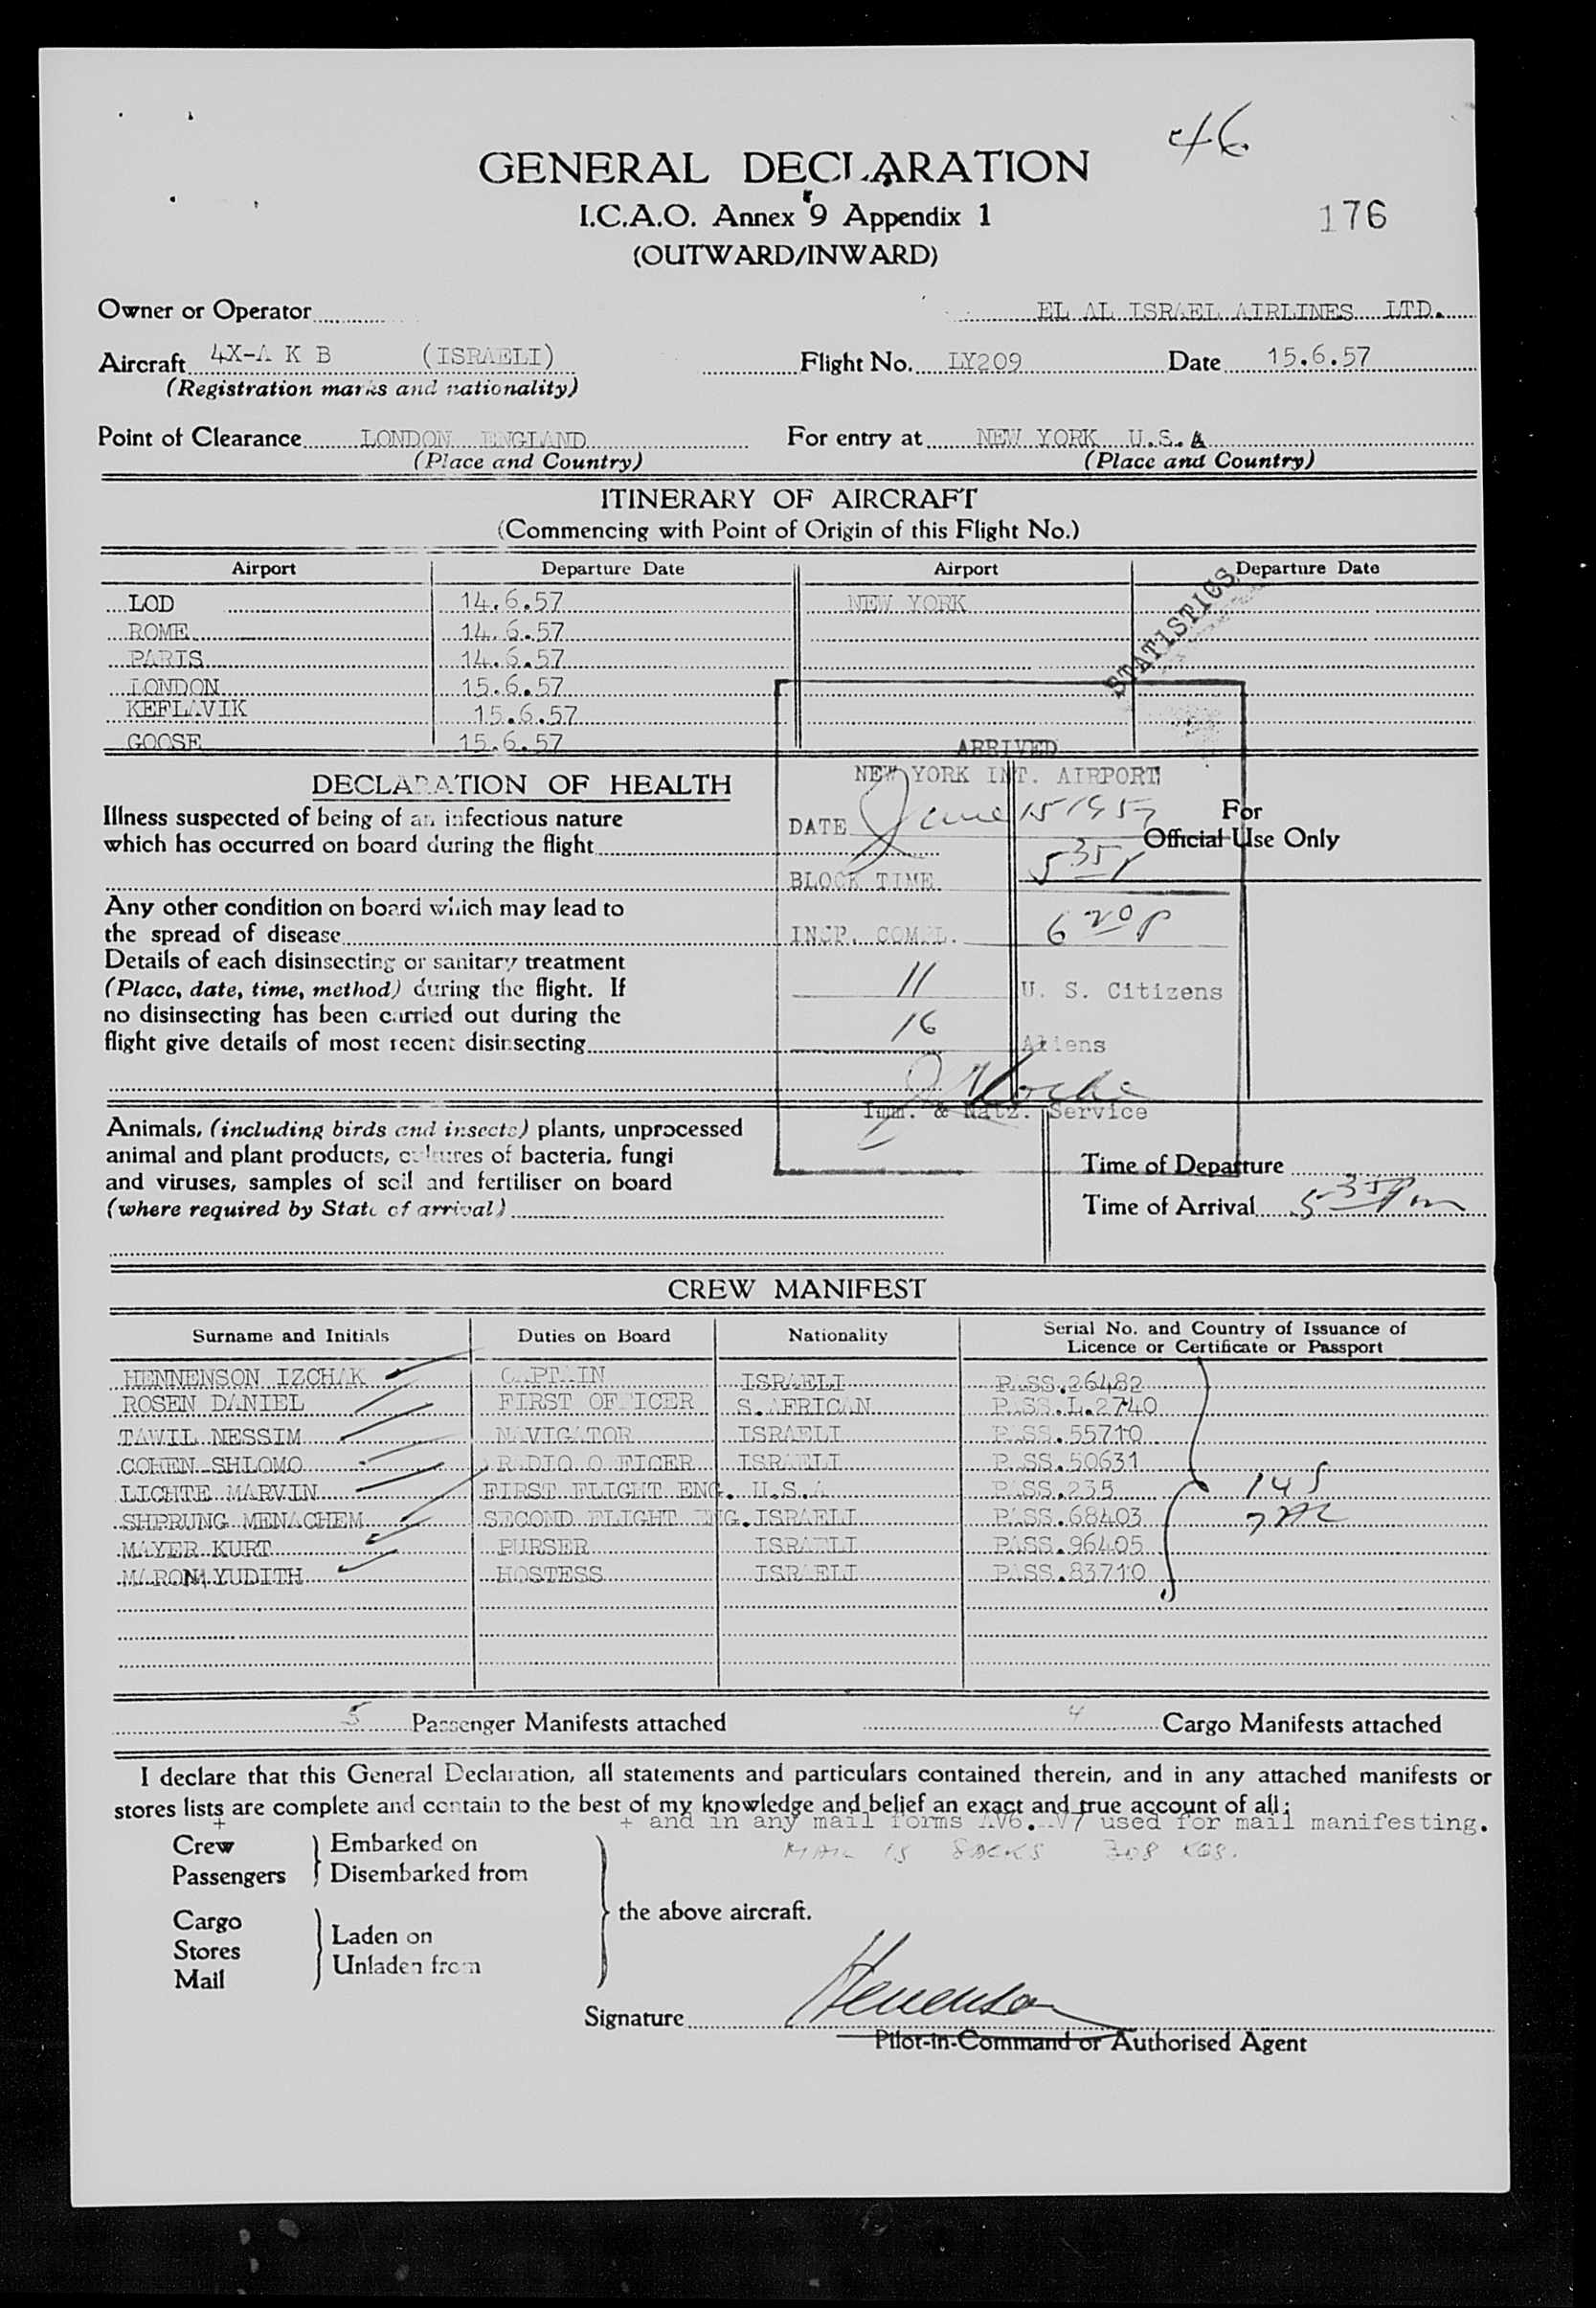 46
GENERAL DECLARATION
I.C.A.O. Annex 9 Appendix 1
176
(OUTWARD/INWARD)
Owner or Operator EL AL ISRAEL AIRLINES LTD.
Aircraft 4X-A K B (ISRAELI) Flight No. LY209 Date 15.6.57
(Registration marks and nationality)
Point of Clearance LONDON ENGLAND For entry at NEW YORK U.S.A
(Place and Country) (Place and Country)
ITINERARY OF AIRCRAFT
(Commencing with Point of Origin of this Flight No.)
Airport Departure Date Airport Departure Date
LOD 14.6.57 NEW YORK
STATISTICS
ROME 14.6.57
PARIS 14.6.57
LONDON 15.6.57
KEFLAVIK 15.6.57
GOOSE 15.6.57
ARRIVED
NEW YORK INT. AIRPORT
DATE June 15 1957
BLOCK TIME 5 35 P
INSP. COMPL. 6 20 P
11 U. S. Citizens
16 Aliens
Imm. & Natz. Service
DECLARATION OF HEALTH
Illness suspected of being of an infectious nature
which has occurred on board during the flight
For
Official Use Only
Any other condition on board which may lead to
the spread of disease
Details of each disinsecting or sanitary treatment
(Place, date, time, method) during the flight. If
no disinsecting has been carried out during the
flight give details of most recent disinsecting
Animals, (including birds and insects) plants, unprocessed
animal and plant products, cultures of bacteria, fungi
and viruses, samples of soil and fertiliser on board
(where required by State of arrival)
Time of Departure
Time of Arrival 5 35 Pm
CREW MANIFEST
Surname and Initials Duties on Board Nationality Serial No. and Country of Issuance of
Licence or Certificate or Passport
HENNENSON IZCHAK CAPTAIN ISRAELI PASS.26482
ROSEN DANIEL FIRST OFFICER S.AFRICAN PASS.L.2740
TAWIL NESSIM NAVIGATOR ISRAELI PASS.55710
COHEN SHLOMO RADIO OFFICER ISRAELI PASS.50631
LICHTE MARVIN FIRST FLIGHT ENG. U.S.A PASS.235
SHPRUNG MENACHEM SECOND FLIGHT ENG. ISRAELI PASS.68403
MAYER KURT PURSER ISRAELI PASS.96405
MARONI YUDITH HOSTESS ISRAELI PASS.83710
5 Passenger Manifests attached 4 Cargo Manifests attached
I declare that this General Declaration, all statements and particulars contained therein, and in any attached manifests or
stores lists are complete and contain to the best of my knowledge and belief an exact and true account of all:
+ + and in any mail forms AV6. AV7 used for mail manifesting.
MAIL 15 SACKS 308 KGS.
Crew
Passengers
Embarked on
Disembarked from
Cargo
Stores
Mail
Laden on
Unladen from
the above aircraft.
Signature Henenson
Pilot-in-Command or Authorised Agent